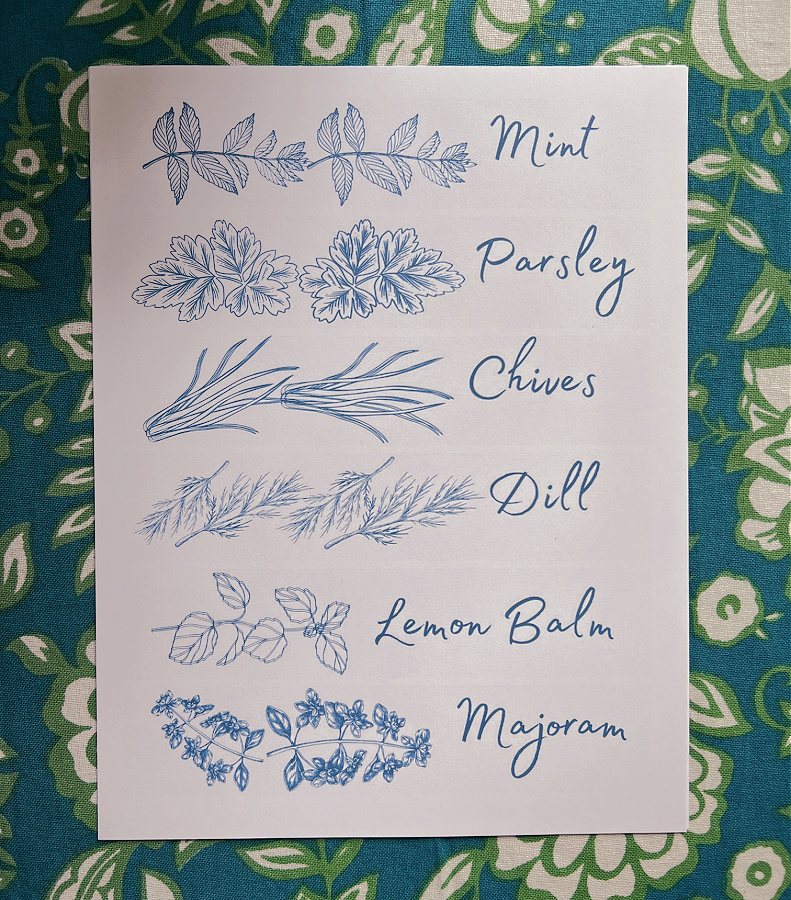 Mint
Parsley
Chives
Dill
Lemon Balm
Majoram